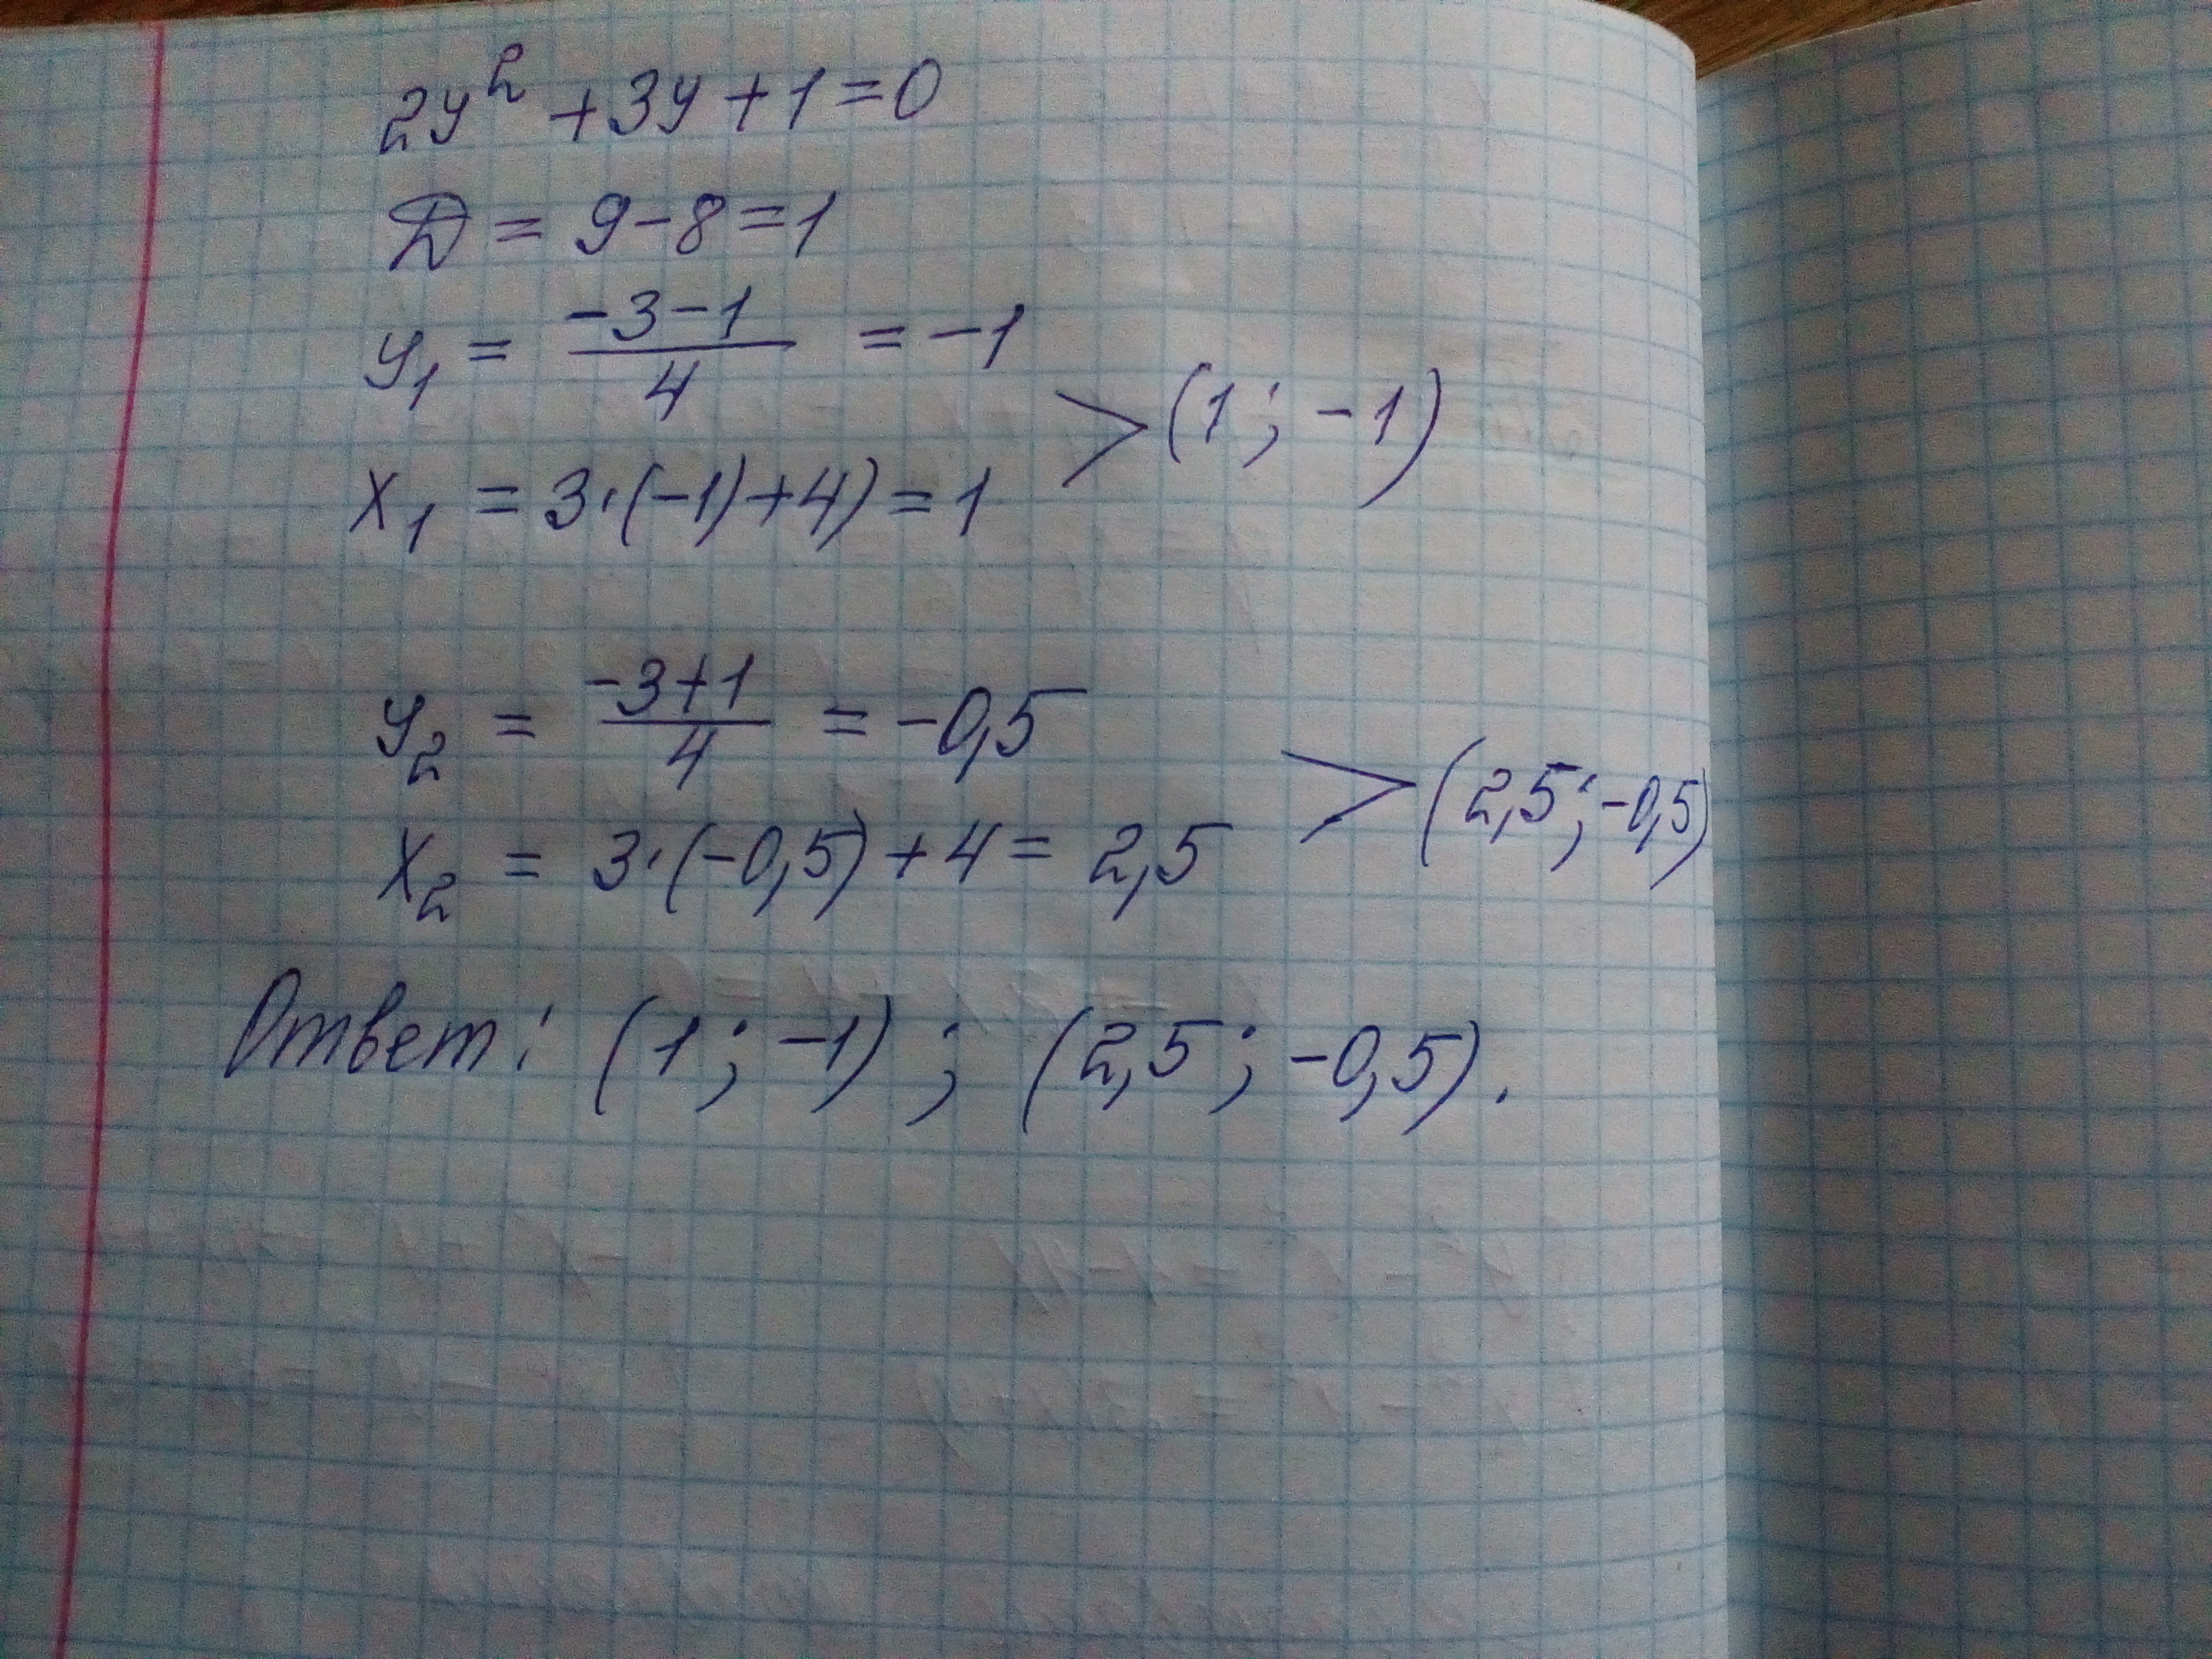 2y² + 3y + 1 = 0
D = 9 - 8 = 1
y₁ = (-3-1)/4 = -1
x₁ = 3·(-1)+4) = 1 > (1; -1)
y₂ = (-3+1)/4 = -0,5
x₂ = 3·(-0,5)+4 = 2,5 > (2,5; -0,5)
Ответ: (1; -1); (2,5; -0,5).